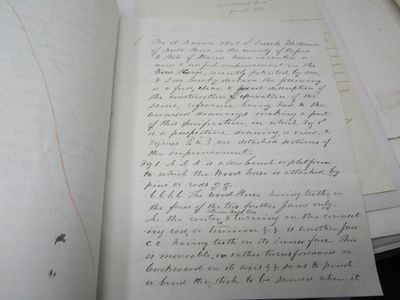 Be it known that I Enoch Williams
of North Paris, in the county of Oxford
& State of Maine have invented a
new & useful improvement on the
Wood Horse, recently patented by me,
& I do hereby declare the following
is a full, clear, & exact description of
the construction & operation of the
same, reference being had to the
annexed drawings making a part
of this specification, in which Fig 1st
is a perspective drawing, or view, &
Figures 2 & 3 are detatched portions of
the improvement.
Fig 1 A A A is a low bench or platform
to which the Wood horse is attached by
pins or rods g. g.
b b b b The Wood Horse having teeth on
the face of the two further Jaws only.
In the center & turning on the connect-
ing rod, or trunnion g g is another Jaw
c. c having teeth on its inner face. This
is moveable, or rather turns forward or
backward on its axis g g so as to pinch
or bind the stick to be sawed when it